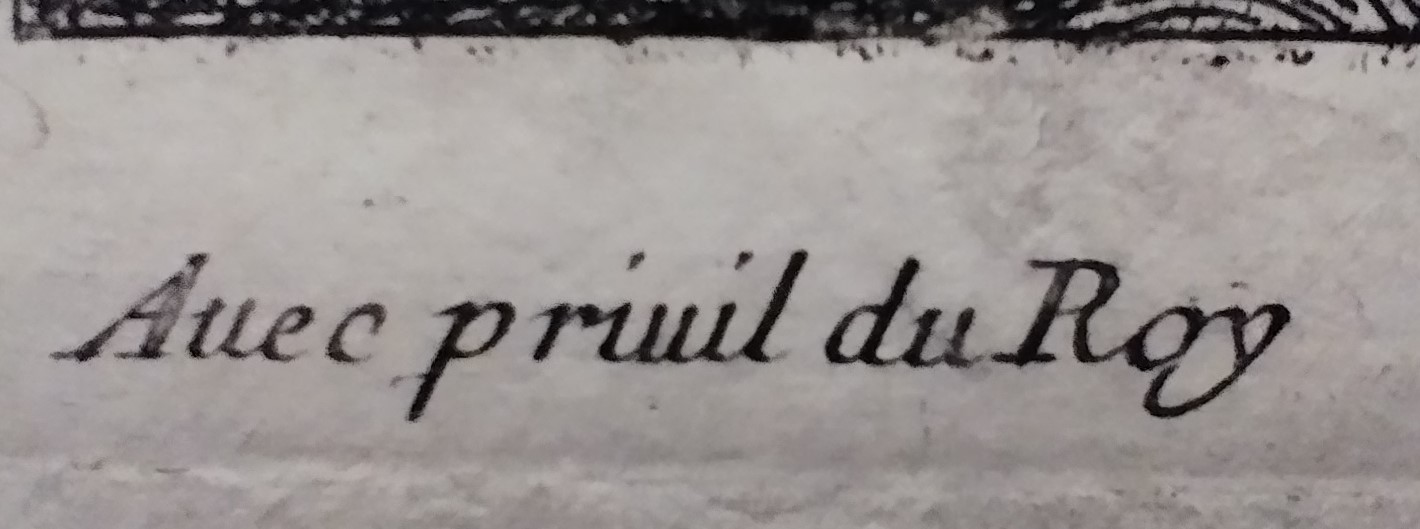 Auec priuil du Roy